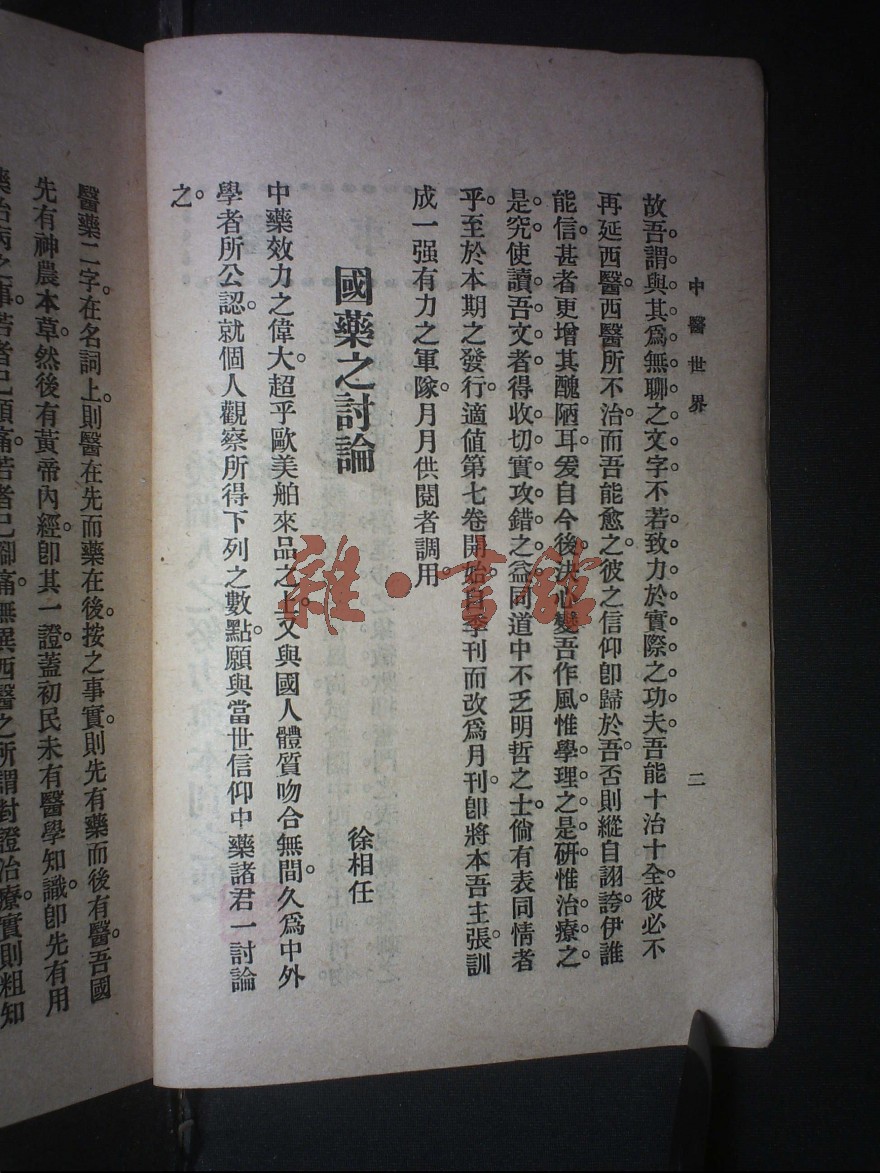 中醫世界
二
故吾謂與其爲無聊之文字。不若致力於實際之功夫。吾能十治十全。彼必不
再延西醫。西醫所不治。而吾能愈之。彼之信仰卽歸於吾。否則縱自詡誇。伊誰
能信。甚者更增其醜陋耳。爰自今後。決心變吾作風。惟學理之是研。惟治療之
是究。使讀吾文者。得收切實攻錯之益。同道中不乏明哲之士。倘有表同情者
乎。至於本期之發行。適値第七卷開始。自季刊而改爲月刊。卽將本吾主張。訓
成一强有力之軍隊。月月供閱者調用。
國藥之討論
徐相任
中藥效力之偉大。超乎歐美舶來品之上。又與國人體質吻合無間。久爲中外
學者所公認。就個人觀察所得下列之數點。願與當世信仰中藥諸君一討論
之。
醫藥二字。在名詞上。則醫在先而藥在後。按之事實。則先有藥而後有醫。吾國
先有神農本草。然後有黃帝內經。卽其一證。蓋初民未有醫學知識。卽先有用
藥治病之事。若者已頭痛。若者已腳痛。無異西醫之所謂對證治療。實則粗知
雜·書館